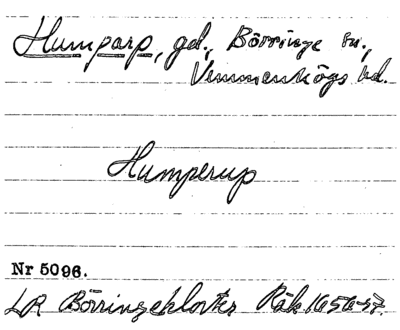 Humparp, gd., Börringe sn.,
Vemmenhögs hd.
Humperup
Nr 5096.
LR Börringekloster Räk 1656-57.